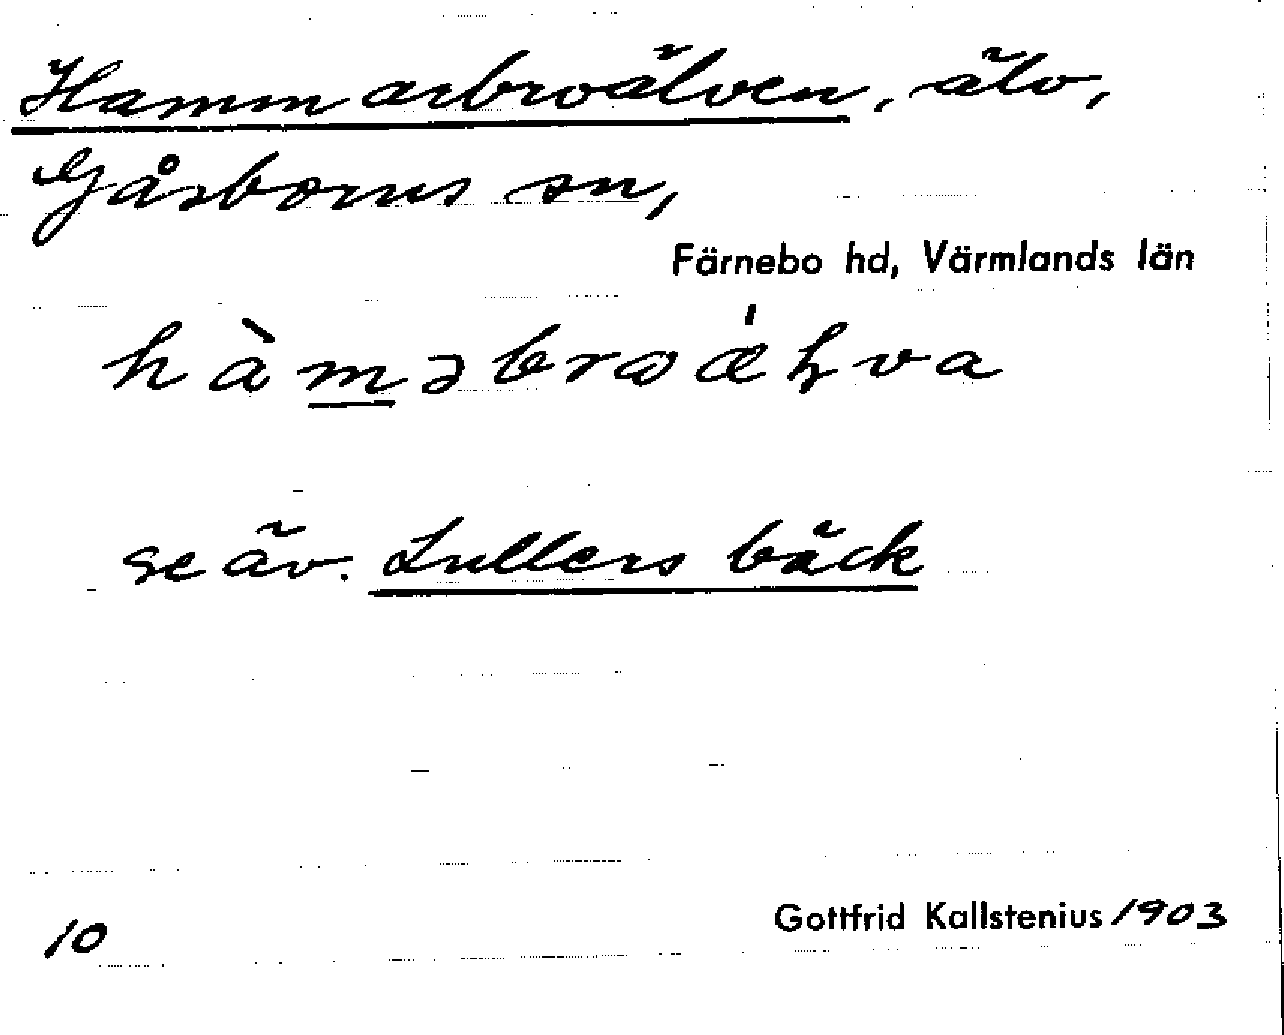 Hammarbroälven, älv,
Gåsborns sn,
Färnebo hd, Värmlands län
hàməbrωǽⱡva
se äv. Lullers bäck
10
Gottfrid Kallstenius 1903